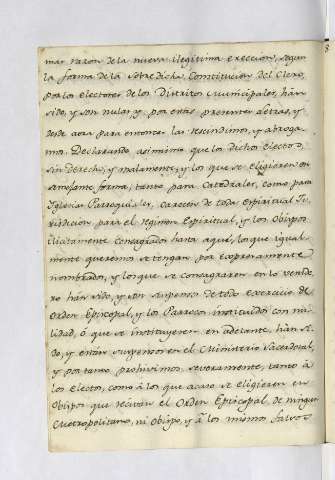 mas razon de la nueva illegitima ereccion, segun
la forma de la sobredicha Constitucion del Clero,
por los Electores de los Distritos Municipales, han
sido, y son nulas, y por estas presentes Letras, y
desde aora para entonces las rescindimos, y abroga
mos. Declarando asimismo que los dichos Electos
sin derecho, y malamente, y los que se eligieren en
semejante forma, tanto para Catedrales, como para
Iglesias Parroquiales, carecen de toda Espiritual Ju-
risdicion para el regimen Espiritual, y los Obispos
ilicitamente consagrados hasta aqui, los que igual
mente queremos se tengan por expresamente
nombrados, y los que se consagraren en lo venide
ro han sido, y son suspensos de todo exercicio de
Orden Episcopal, y los Parrocos instituidos con nu
lidad, ò que se instituyeren en adelante, han si
do, y están suspensos en el Ministerio Sacerdotal,
y por tanto prohivimos severamente, tanto à
los Electos, como à los que acaso se eligieren en
Obispos que recivan el Orden Episcopal de ningun
Metropolitano, ni Obispo, y à los mismos falsos